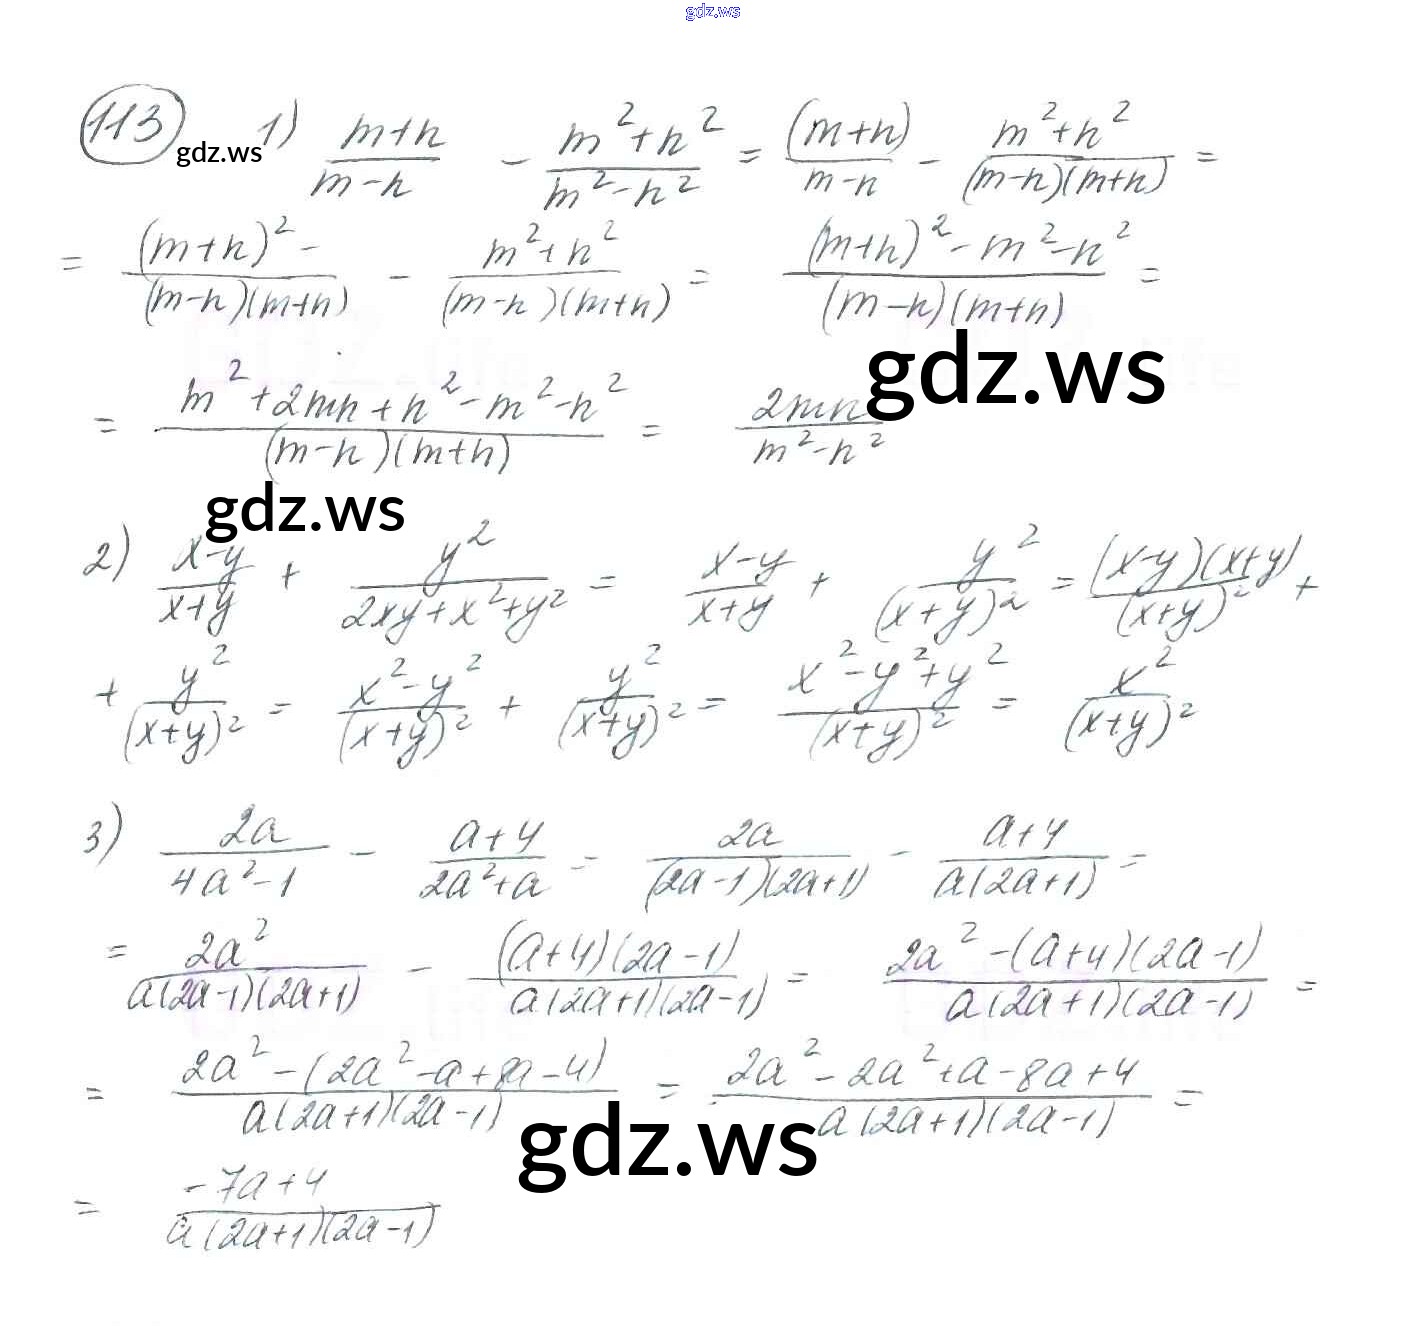 gdz.ws
113 gdz.ws 1) (m+n)/(m-n) - (m²+n²)/(m²-n²) = (m+n)/(m-n) - (m²+n²)/((m-n)(m+n)) =
= (m+n)²-/((m-n)(m+n)) - (m²+n²)/((m-n)(m+n)) = ((m+n)²-m²-n²)/((m-n)(m+n)) =
gdz.ws
= (m²+2mn+n²-m²-n²)/((m-n)(m+n)) = 2mn/(m²-n²)
gdz.ws
2) (x-y)/(x+y) + y²/(2xy+x²+y²) = (x-y)/(x+y) + y²/(x+y)² = (x-y)(x+y)/(x+y)² +
+ y²/(x+y)² = (x²-y²)/(x+y)² + y²/(x+y)² = (x²-y²+y²)/(x+y)² = x²/(x+y)²
3) 2a/(4a²-1) - (a+4)/(2a²+a) = 2a/((2a-1)(2a+1)) - (a+4)/(a(2a+1)) =
= 2a²/(a(2a-1)(2a+1)) - (a+4)(2a-1)/(a(2a+1)(2a-1)) = (2a²-(a+4)(2a-1))/(a(2a+1)(2a-1)) =
= (2a²-(2a²-a+8a-4))/(a(2a+1)(2a-1)) = (2a²-2a²+a-8a+4)/(a(2a+1)(2a-1)) =
gdz.ws
= (-7a+4)/(a(2a+1)(2a-1))